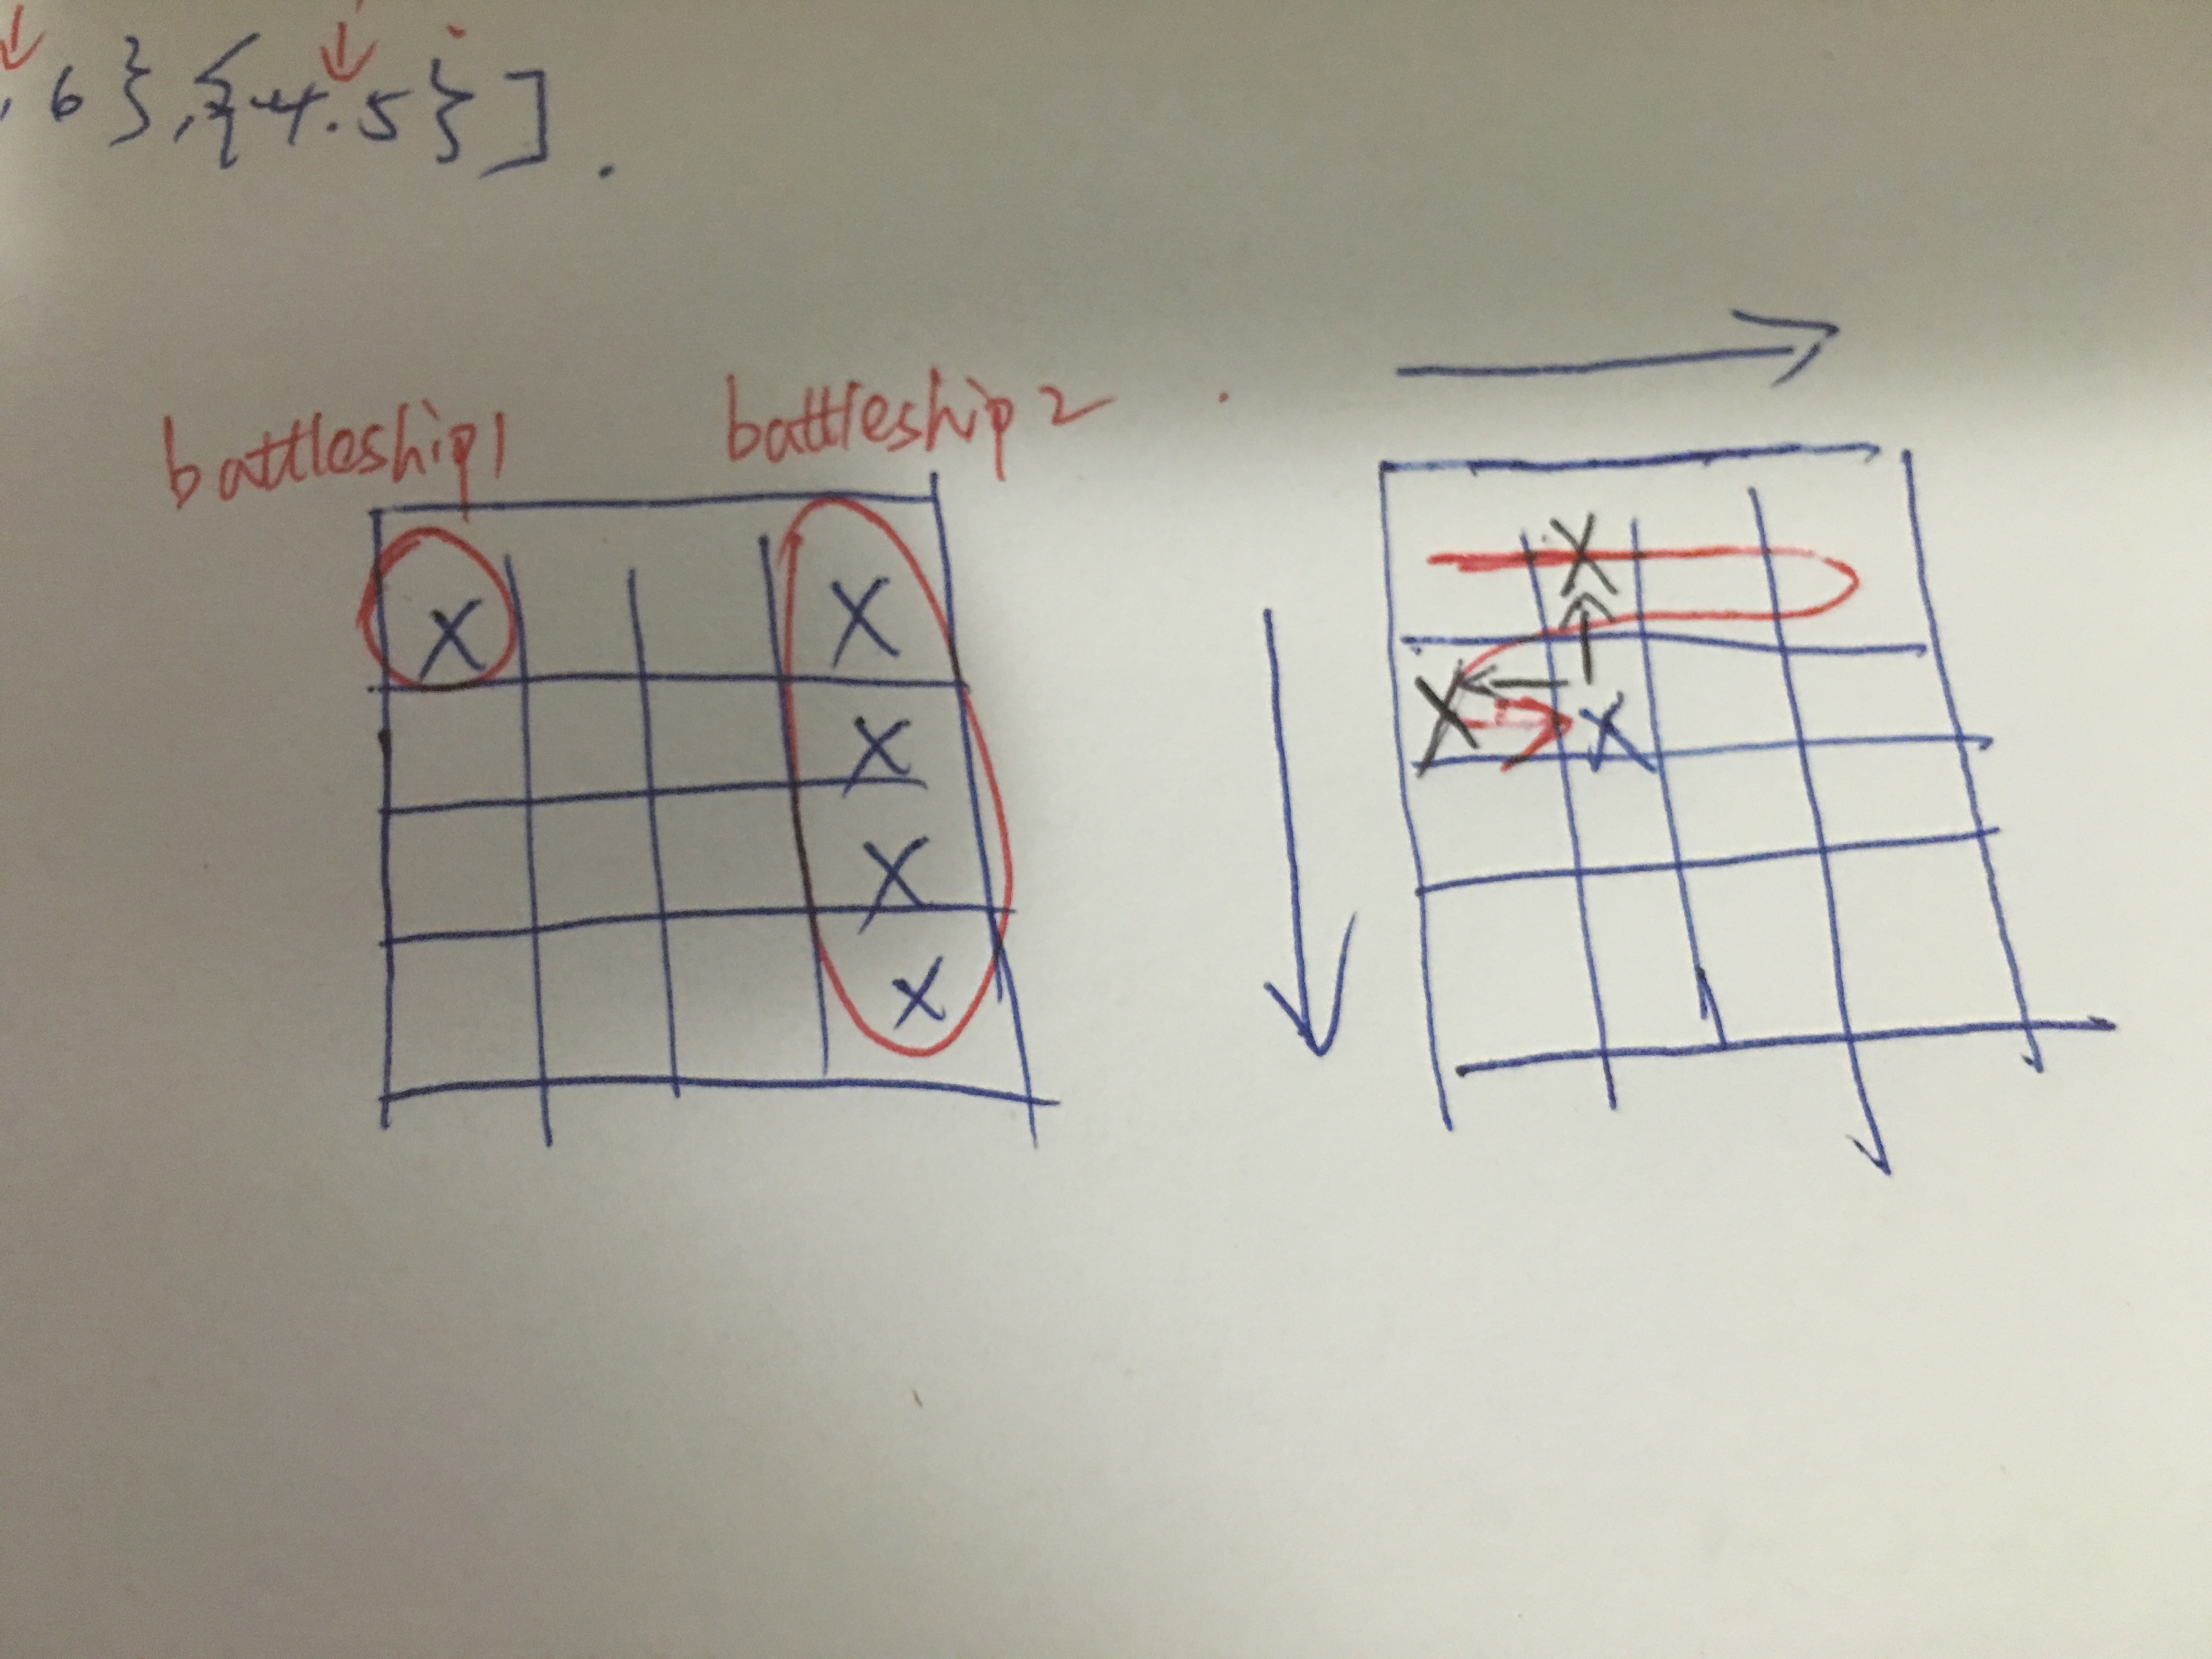 , 6 }, { 4. 5 } ] .
battleship1 battleship 2
X X
X
X
X
X
X X